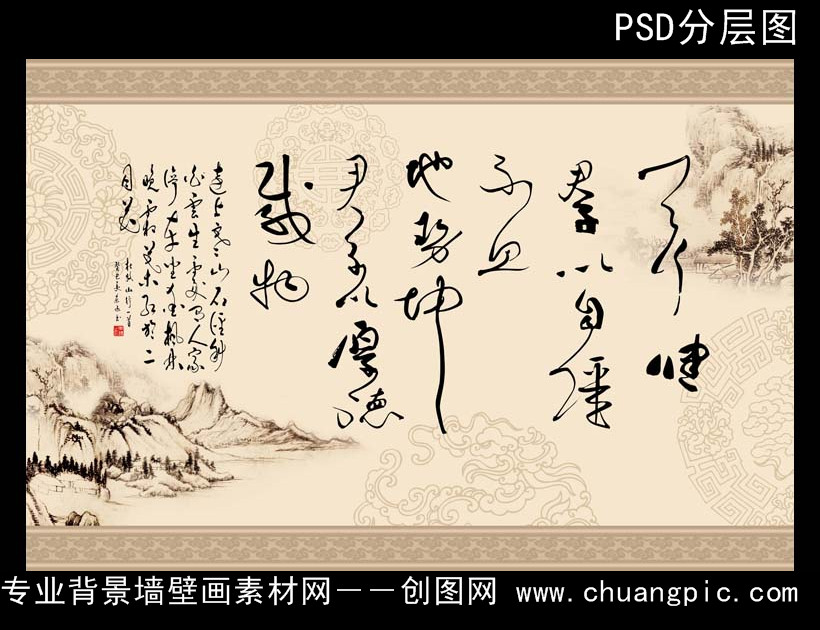 PSD分层图
天行健
君子以自强
不息
地势坤
君子以厚德
载物
远上寒山石径斜
白云生处有人家
停车坐爱枫林
晚霜叶红于二
月花
杜牧山行一首
专业背景墙壁画素材网——创图网 www.chuangpic.com